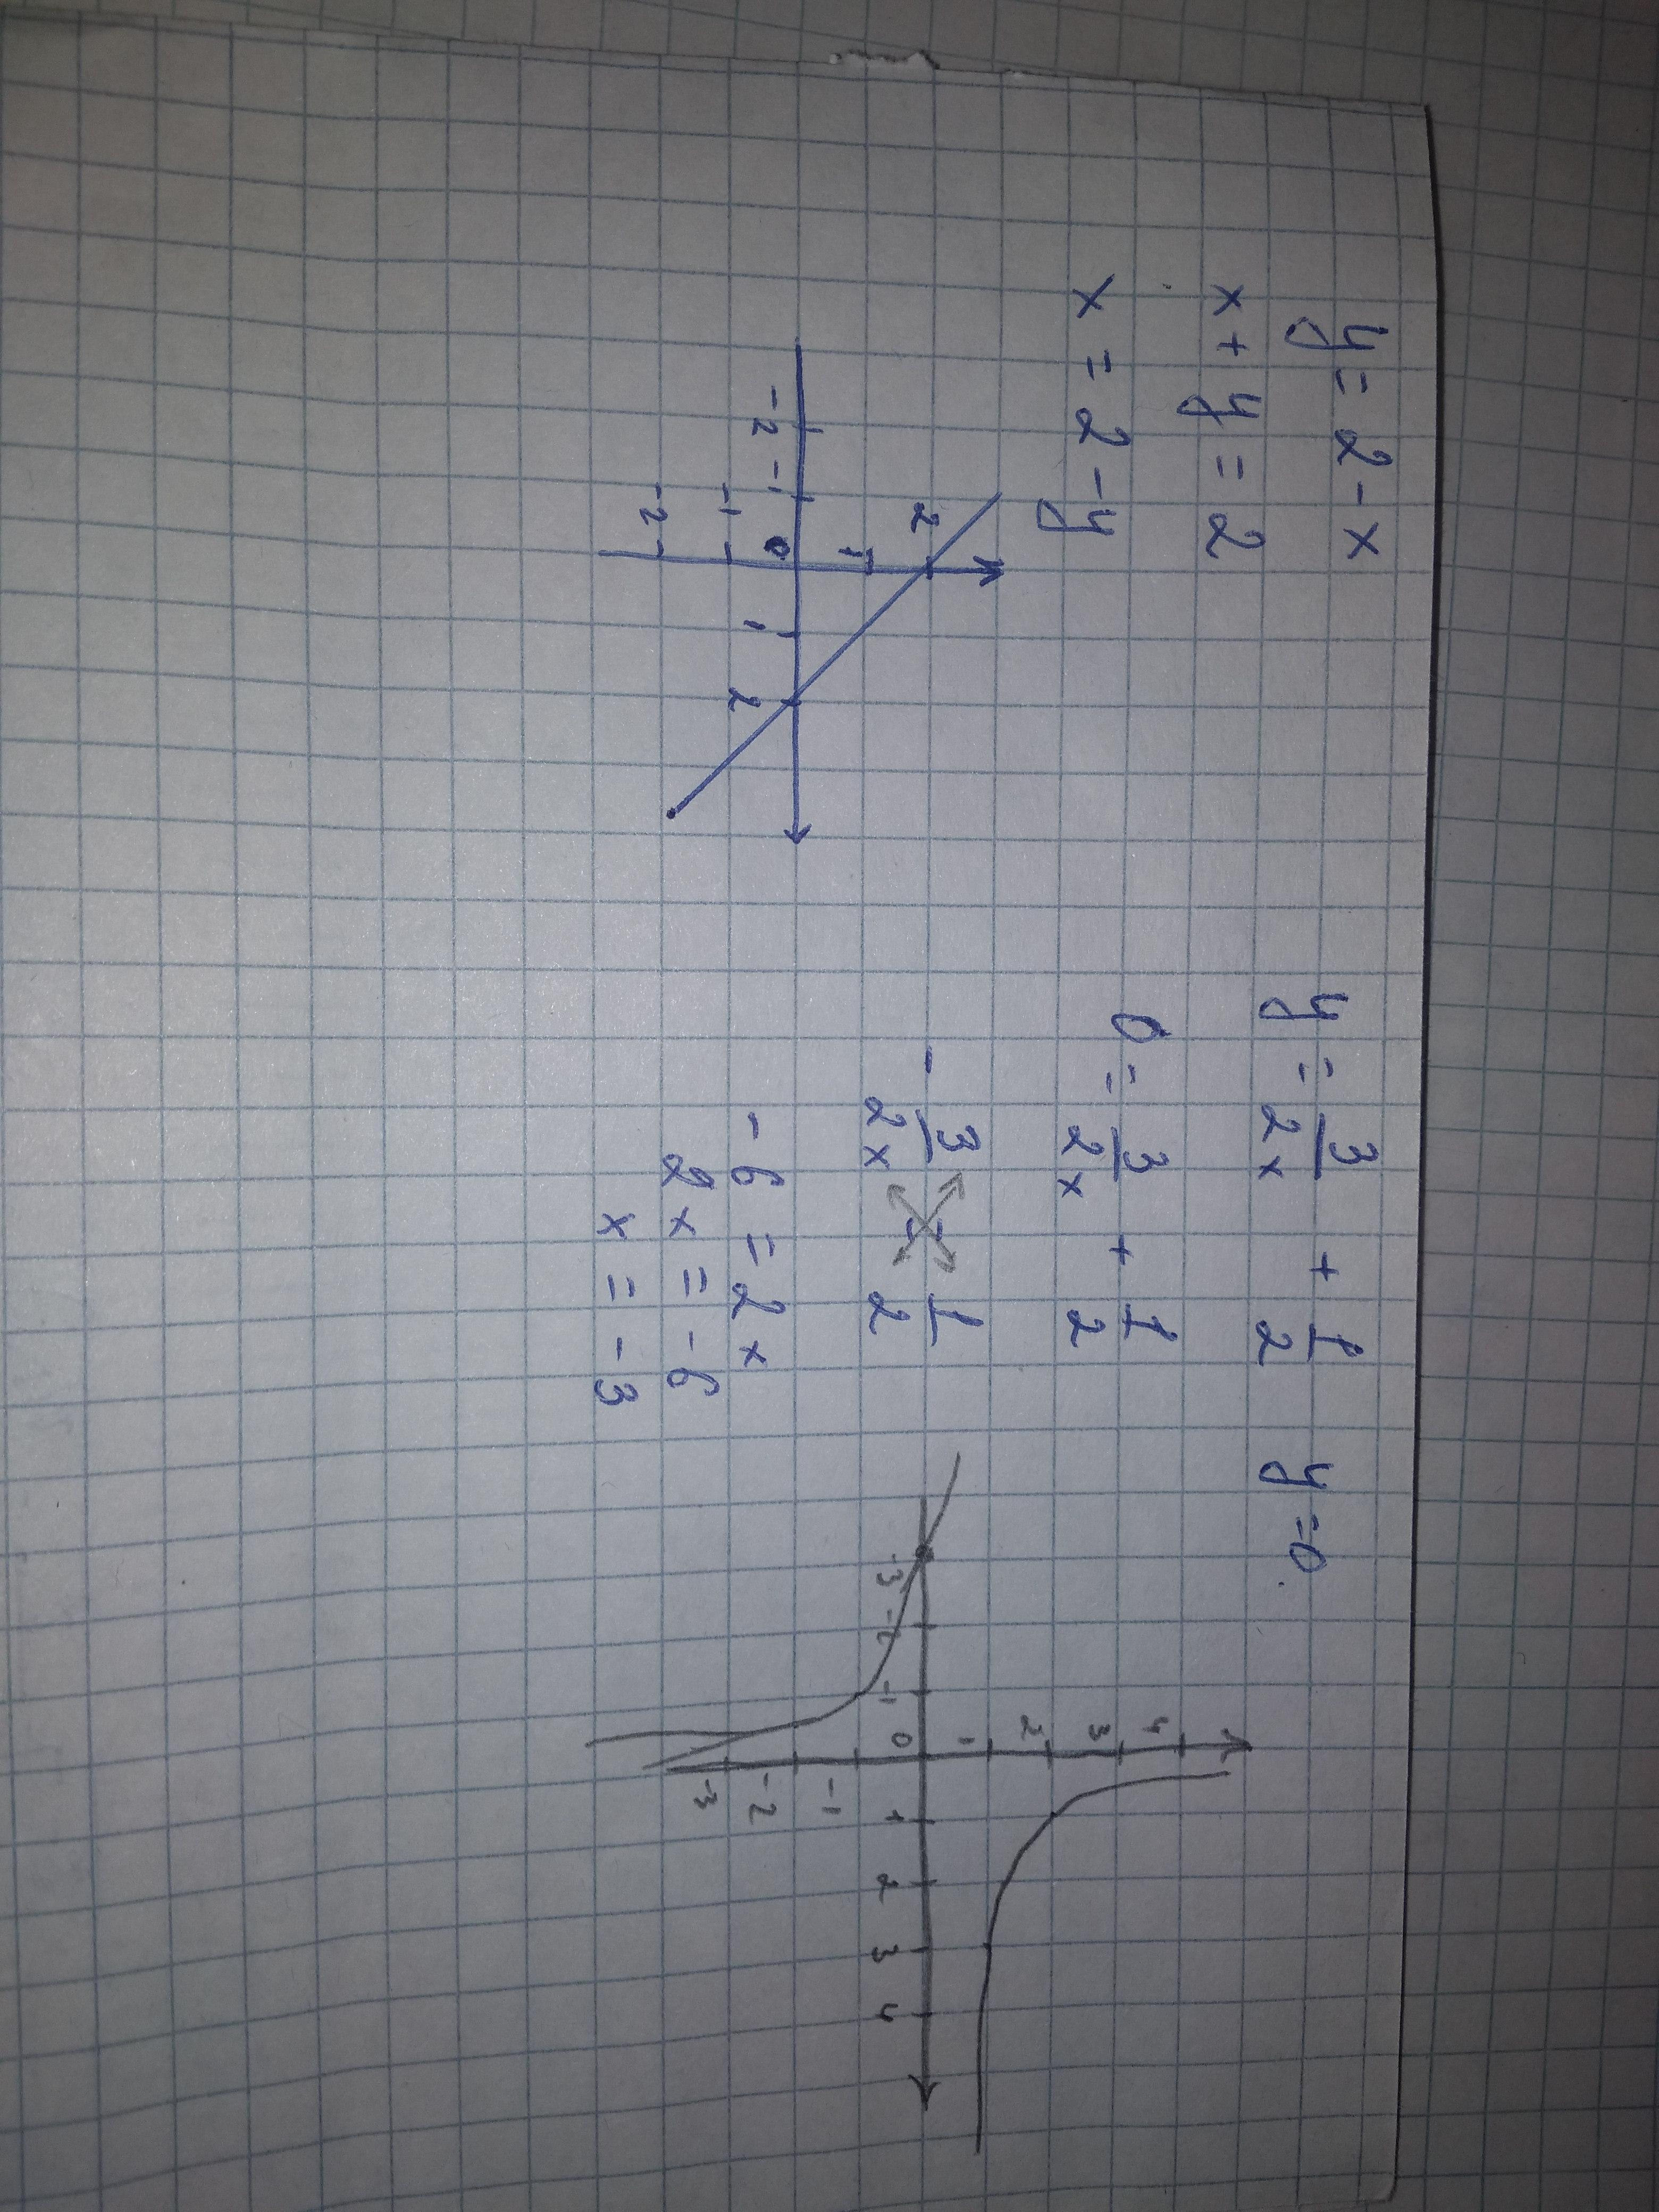 y = 2 - x
x + y = 2
x = 2 - y
2
1
-2 -1 0 1 2
-1
-2
y = 3/2x + 1/2 y = 0
0 = 3/2x + 1/2
- 3/2x = 1/2
-6 = 2x
2x = -6
x = -3
4
3
2
1
-3 -2 -1 0 1 2 3 4
-1
-2
-3